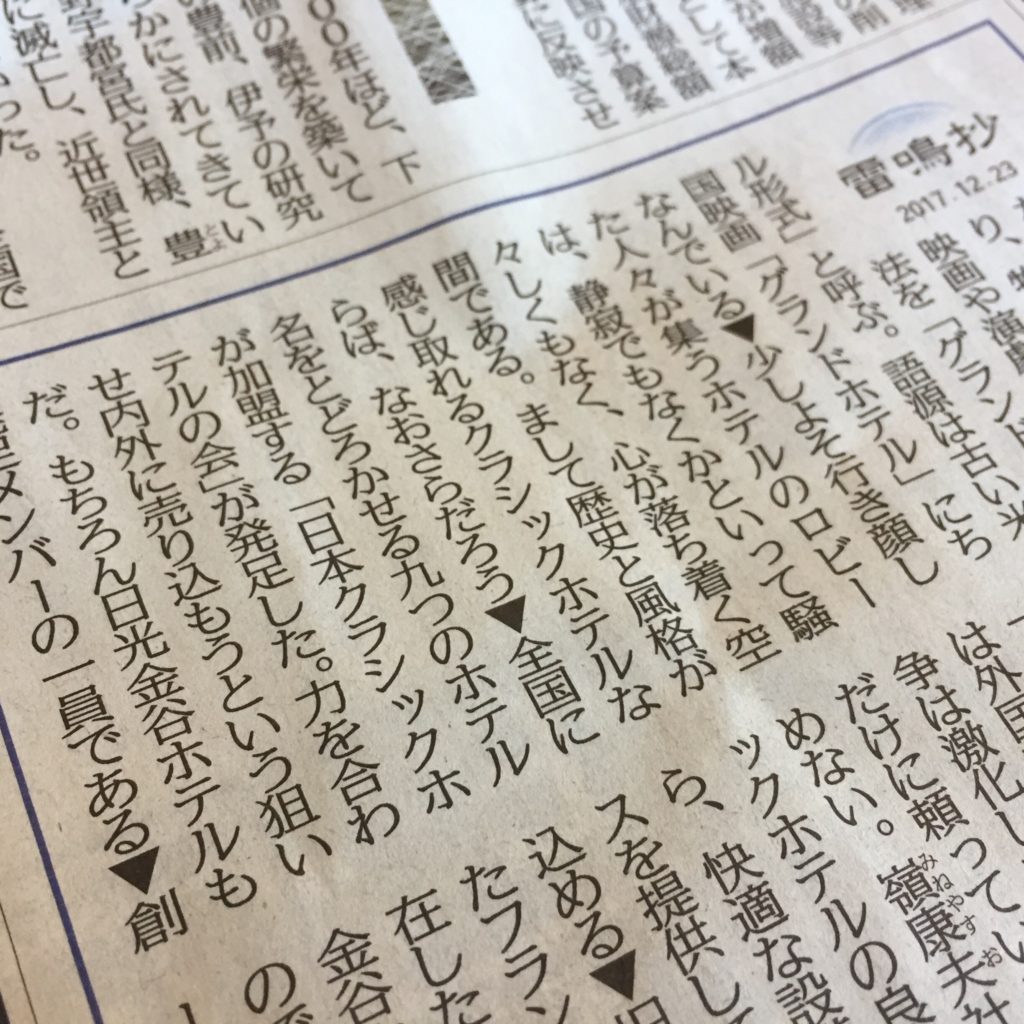 雷鳴抄
2017.12.23
映画や演劇
法を「グランド
と呼ぶ。語源は古い米
国映画「グランドホテル」にち
なんでいる▼少しよそ行き顔し
た人々が集うホテルのロビー
は、静寂でもなくかといって騒
々しくもなく、心が落ち着く空
間である。まして歴史と風格が
感じ取れるクラシックホテルな
らば、なおさらだろう▼全国に
名をとどろかせる九つのホテル
が加盟する「日本クラシックホ
テルの会」が発足した。力を合わ
せ内外に売り込もうという狙い
だ。もちろん日光金谷ホテルも
メンバーの一員である▼創
は外国
争は激化し
だけに頼ってい
めない。嶺康夫社
みねやすお
ックホテルの良
ら、快適な設
スを提供し
込める▼旧
たフラン
在した
金谷
ので
として本
国の予算案
に反映させ
00年ほど、下
個の繁栄を築いて
豊前、伊予の研究
かにされてきてい
宇都宮氏と同様、豊
とよ
に滅亡し、近世領主と
った。
国で